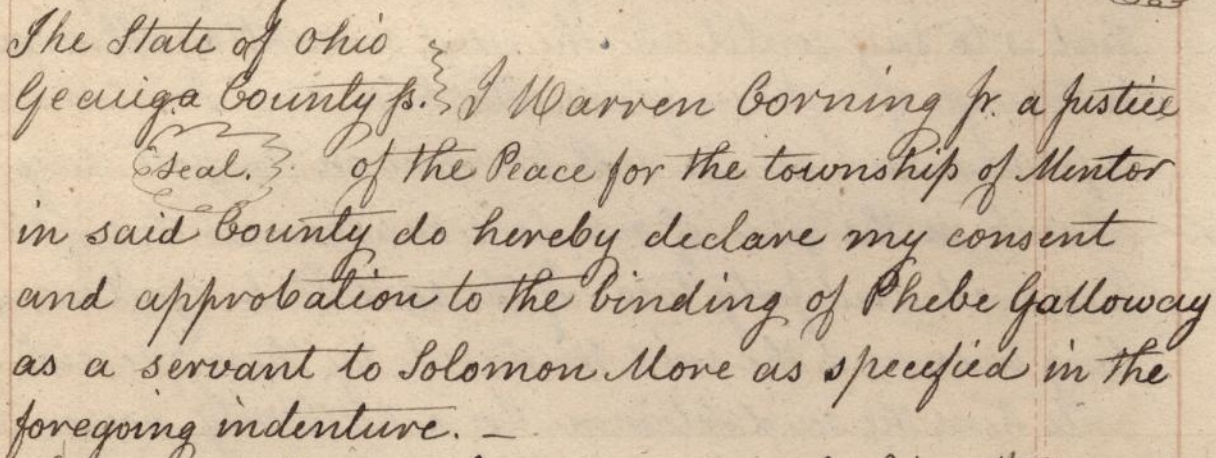 The State of Ohio
Geauga County ss. } I Warren Corning Jr. a Justice
Seal. of the Peace for the township of Mentor
in said County do hereby declare my consent
and approbation to the binding of Phebe Galloway
as a servant to Solomon More as specefied in the
foregoing indenture. –